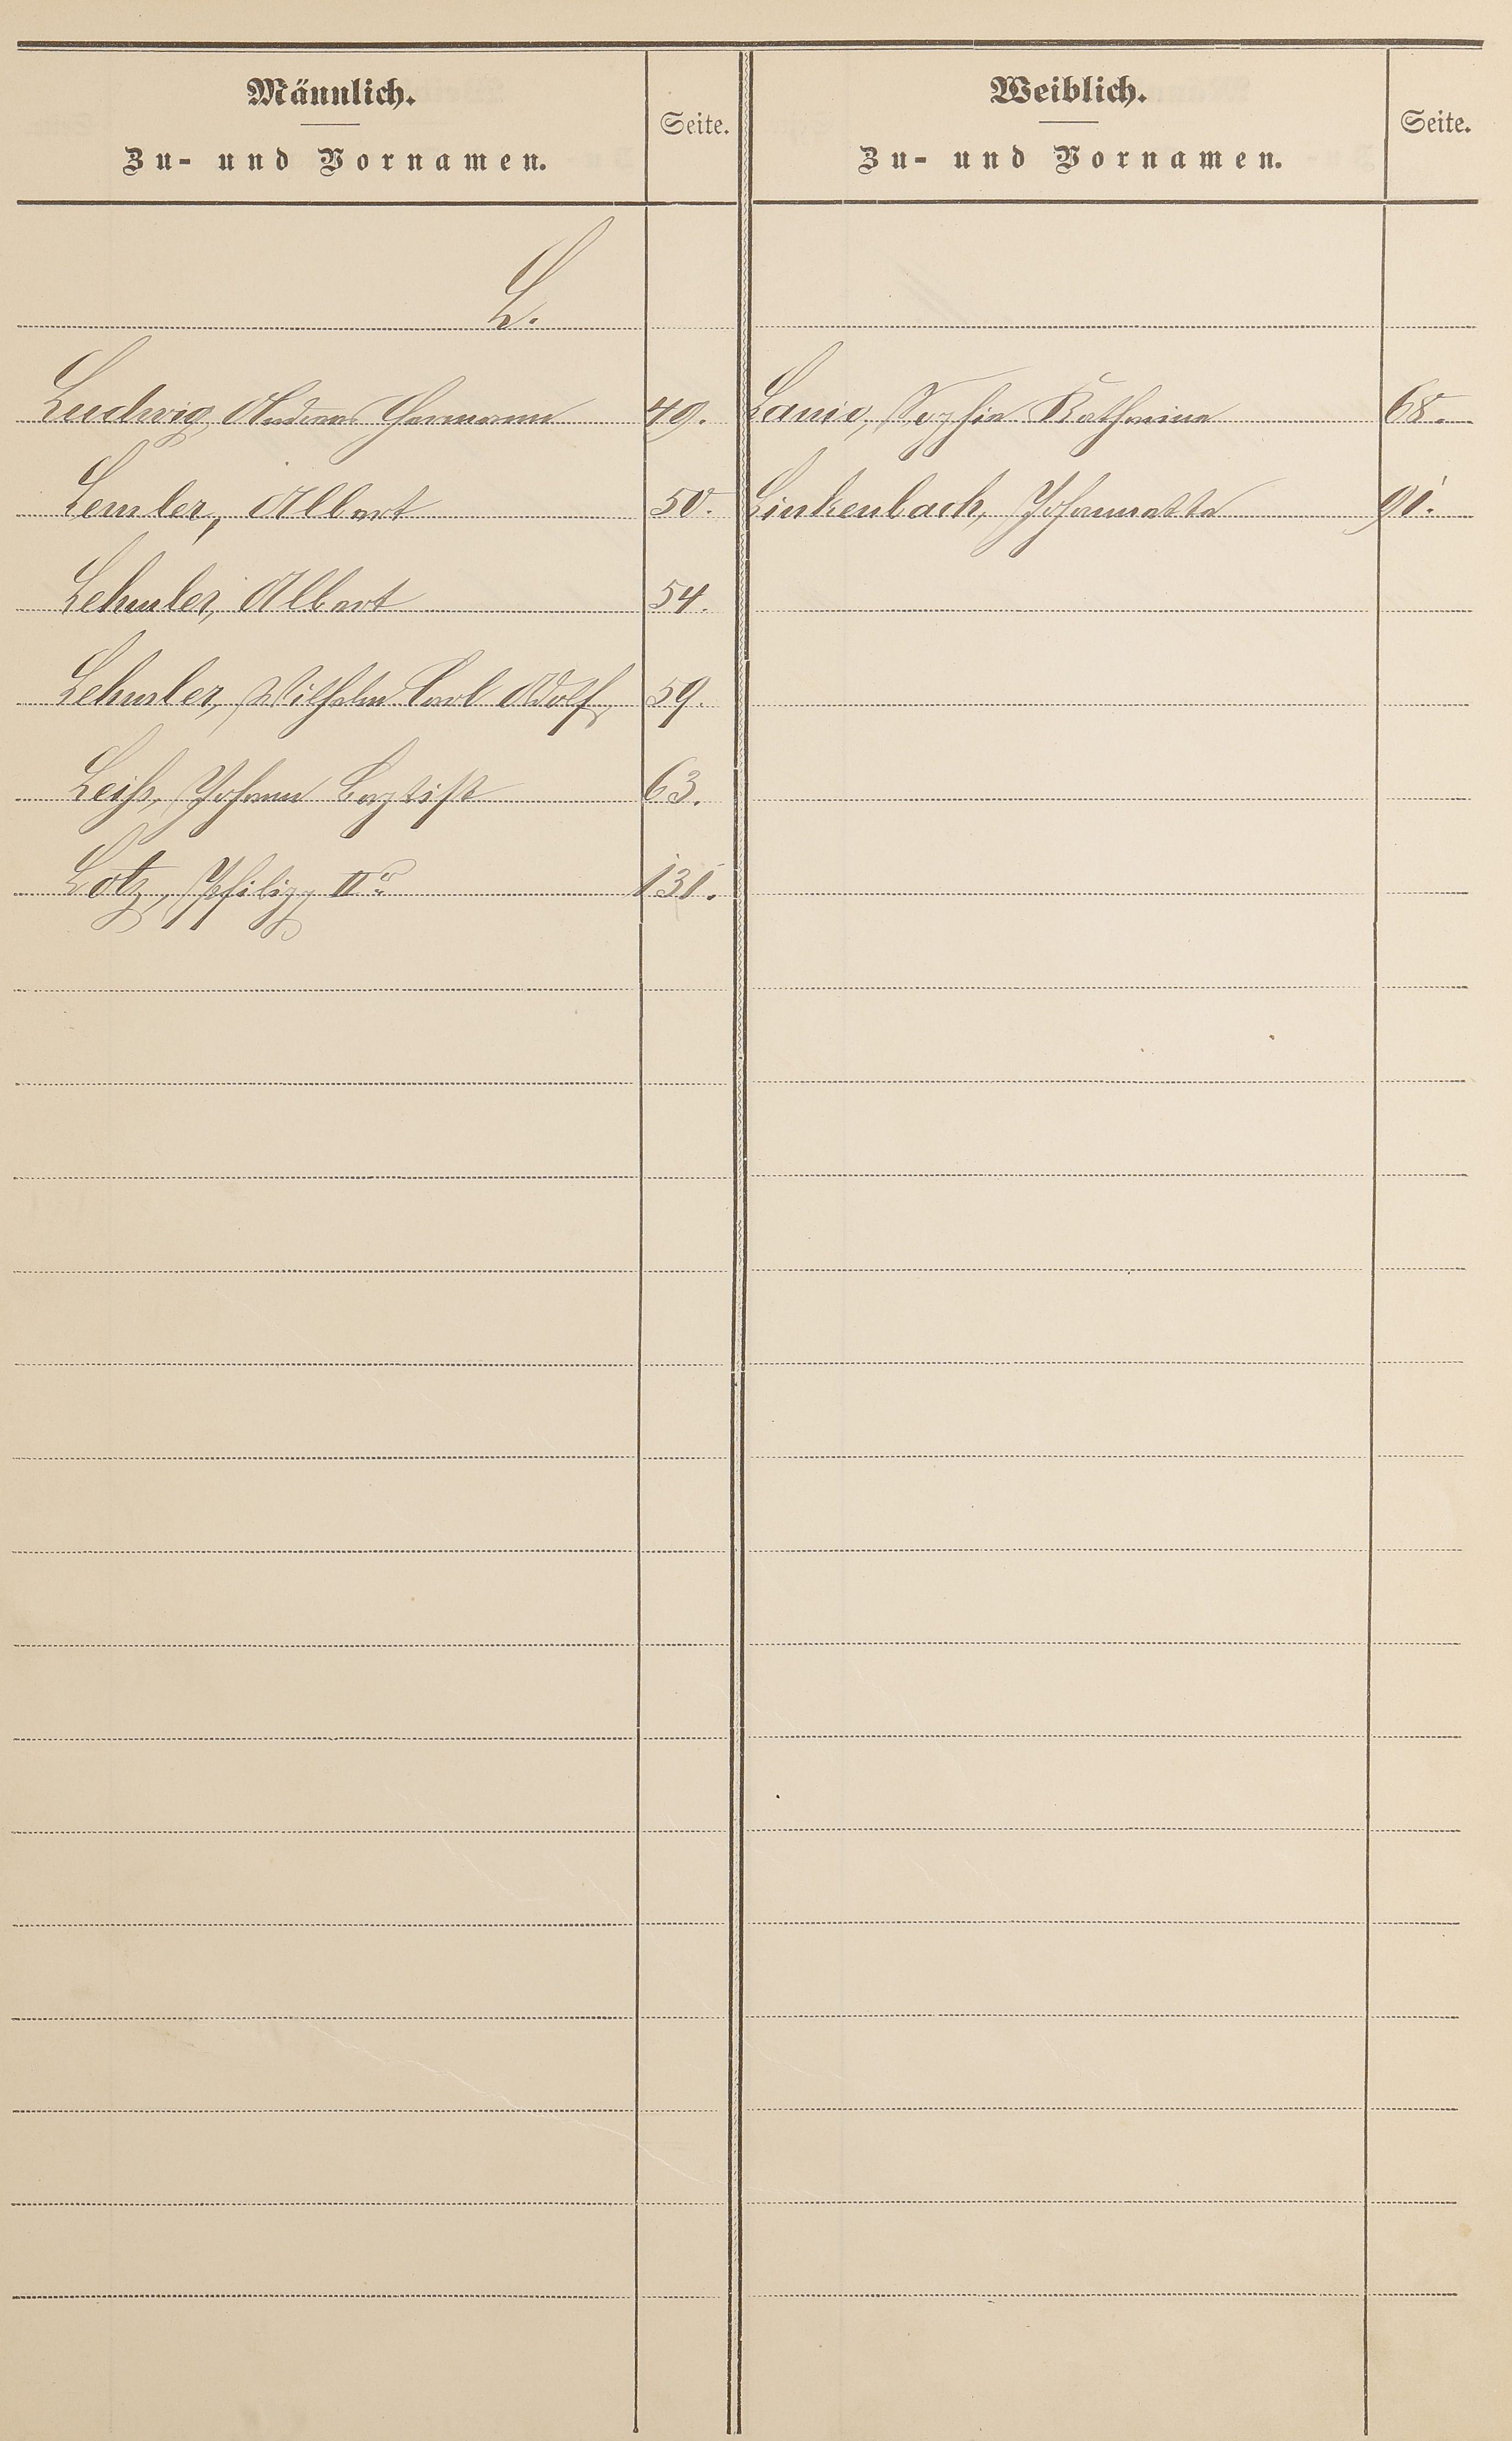 Männlich.
Zu- und Vornamen.
Seite.
Weiblich.
Zu- und Vornamen.
Seite.
L.
Ludwig, Andreas Hermann 49. Lanio, Sophie Katharina 68.
Lemler, Albert 50. Linkenbach, Johannette 91.
Lehmler, Albert 54.
Lehmler, Wilhelm Carl Adolf, 59.
Leiß, Johann Baptist 63.
Lotz, Philipp IIr 131.